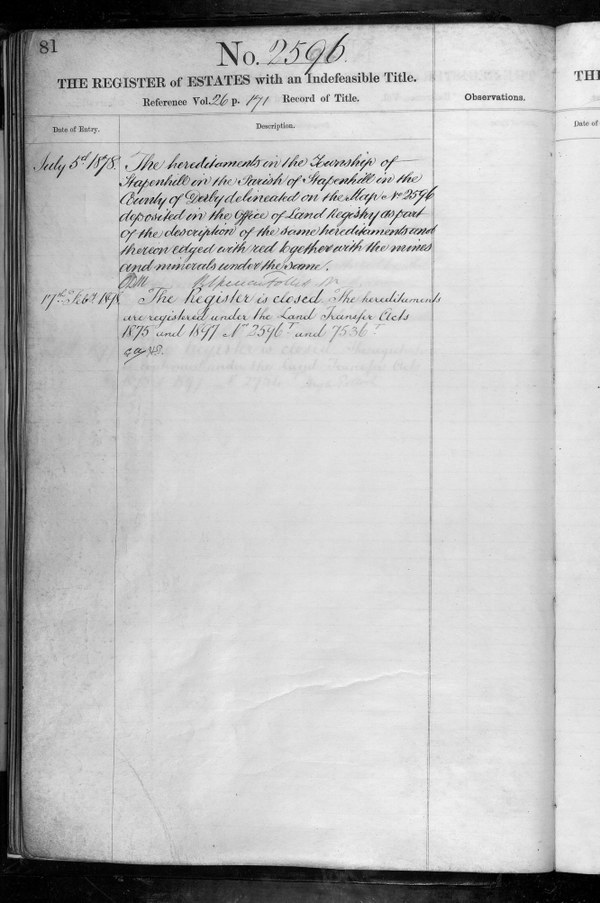 81
No. 2596
THE REGISTER of ESTATES with an Indefeasible Title.
Reference Vol. 26 p. 171 Record of Title.
Observations.
Date of Entry.
Description.
July 5th 1878. The hereditaments in the Township of
Stapenhill in the Parish of Stapenhill in the
County of Derby delineated on the Map No 2596
deposited in the Office of Land Registry as part
of the description of the same hereditaments and
thereon edged with red together with the mines
and minerals under the same.
17th The Register is closed. The hereditaments
are registered under the Land Transfer Acts
1875 and 1897 Nos 2596T and 7536T
THE
Date of